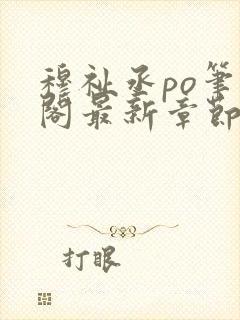 穆祉丞po笔
阁最新章节
打眼